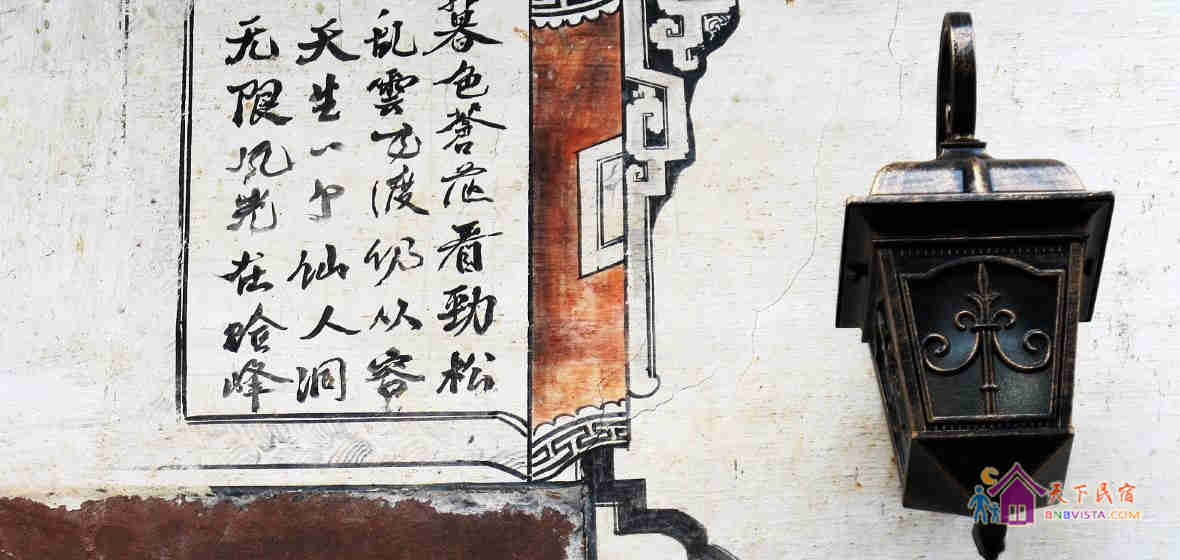 暮色蒼茫看勁松
乱雲飞渡仍从容
天生一个仙人洞
无限风光在险峰
天下民宿
BNBVISTA.COM